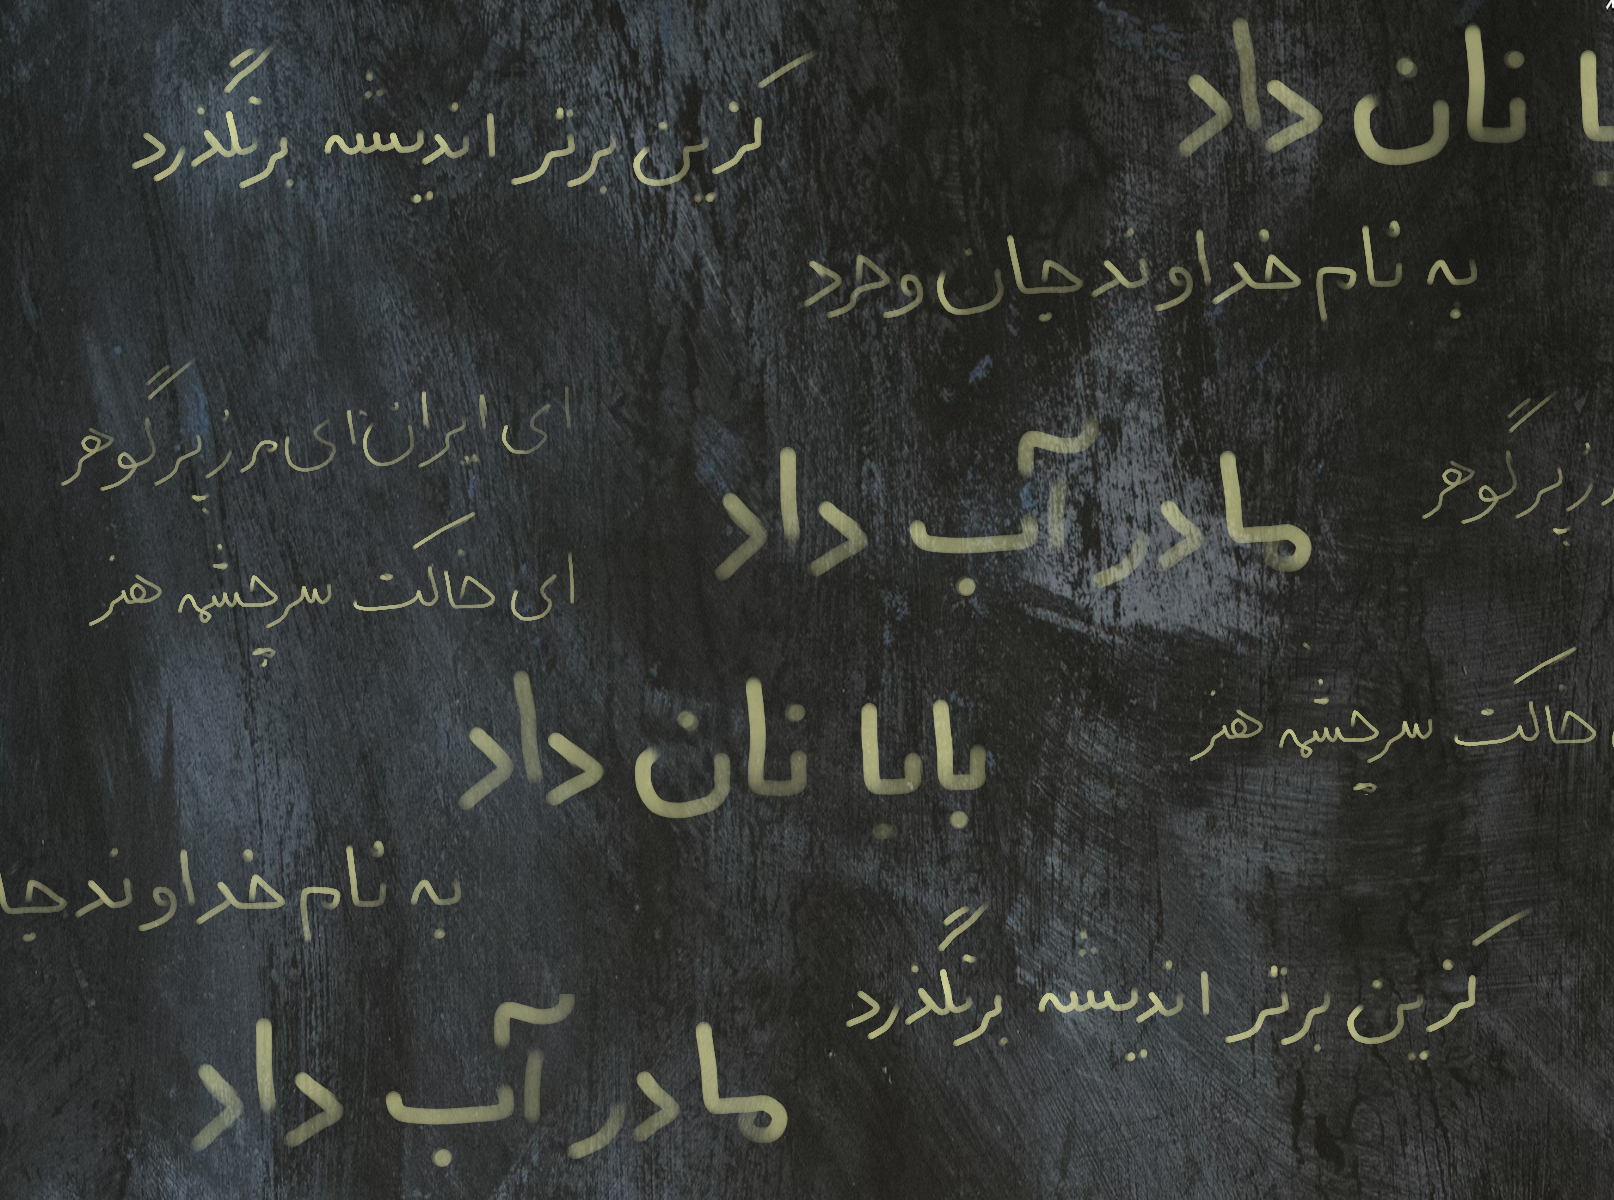 با نان داد
کزین برتر اندیشه برنگذرد
به نام خداوند جان وخرد
ای ایران ای مرز پرگوهر
مادر آب داد
پرگوهر
ای خاکت سرچشمه هنر
خاکت سرچشمه هنر
بابا نان داد
به نام خداوند جا
کزین برتر اندیشه برنگذرد
مادر آب داد